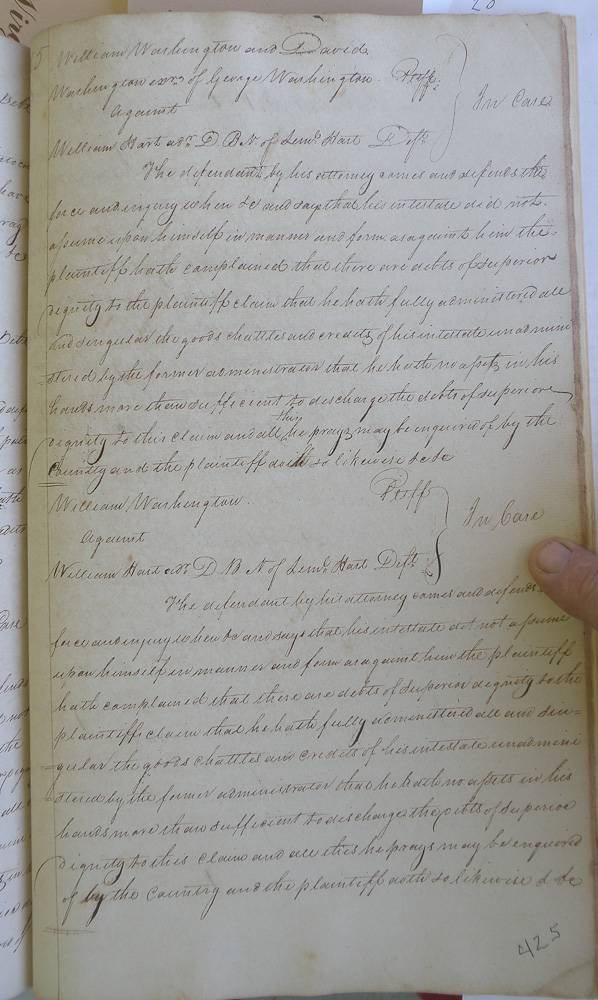 William Washington and David
Washington exrs of George Washington Pltffs
against } In Case
William Hart adr D B N of Leml Hart Deft
The defendant by his attorney comes and defends the
force and injury when &c and says that his intestate did not
assume upon himself in manner and form as against him the
plaintiff hath complained that there are debts of superior
dignity to the plaintiff claim that he hath fully administered all
and singular the goods chattles and credits of his intestate unadmini
=stered by the former administrator that he hath no assets in his
hands more than sufficient to discharge the debts of superiore
dignity to this claim and all this he prays may be enquired of by the
Country and the plaintiff doth so likewise &c &c
William Washington Pltff
against } In Case
William Hart exr D B N of Leml Hart Deft
The defendant by his attorney comes and defends
force and injury when &c and says that his intestate did not assume
upon himself in manner and form as against him the plaintiff
hath complained that there are debts of superior dignity to the
plaintiffs claim that he hath fully administered all and sin=
=gular the goods chattles and credits of his intestate unadmini
=stered by the former administrator that he hath no assets in his
hands more than sufficient to discharge the debts of superior
dignity to this claim and all this he prays may be enquired
of by the Country and the plaintiff doth so likewise & &c
425